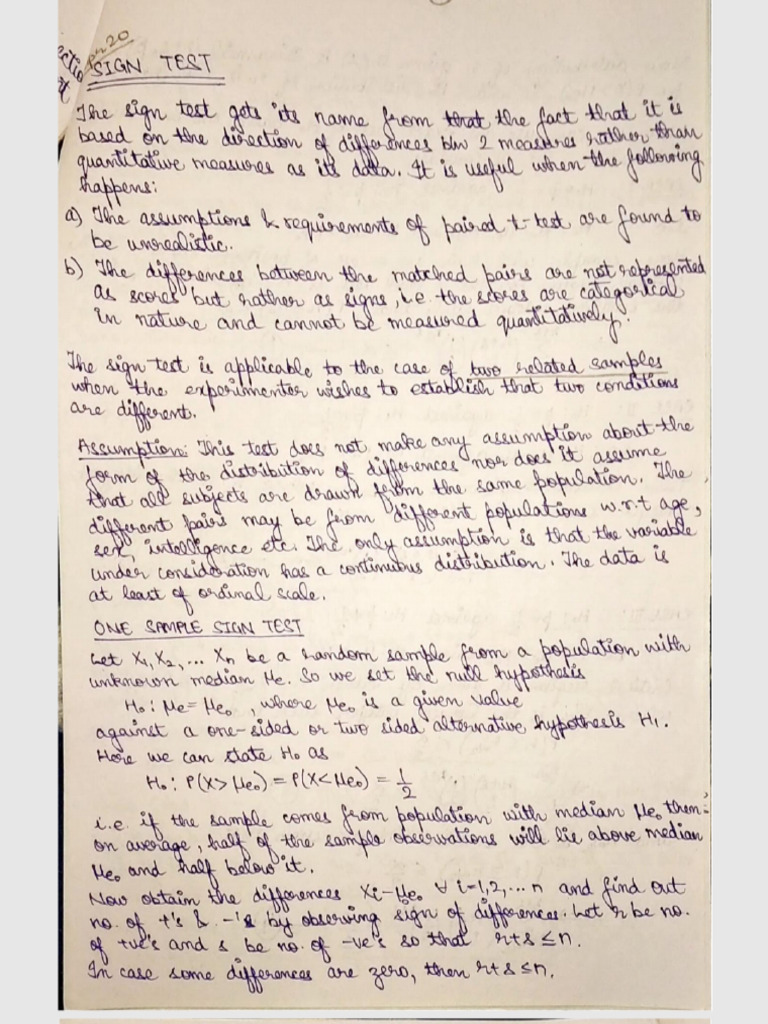 pr 20
SIGN TEST
The sign test gets its name from that the fact that it is
based on the direction of differences b/w 2 measures rather than
quantitative measures as its data. It is useful when the following
happens:
a) The assumptions & requirements of paired t-test are found to
be unrealistic.
b) The differences between the matched pairs are not represented
as scores but rather as signs, i.e. the scores are categorical
in nature and cannot be measured quantitatively.
The sign test is applicable to the case of two related samples
when the experimentor wishes to establish that two conditions
are different.
Assumption: This test does not make any assumption about the
form of the distribution of differences nor does it assume
that all subjects are drawn from the same population. The
different pairs may be from different populations w.r.t age,
sex, intelligence etc. The only assumption is that the variable
under consideration has a continuous distribution. The data is
at least of ordinal scale.
ONE SAMPLE SIGN TEST
Let X₁, X₂, ... Xn be a random sample from a population with
unknown median Me. So we set the null hypothesis
H₀ : Me = Me₀ , where Me₀ is a given value
against a one-sided or two sided alternative hypothesis H₁.
Here we can state H₀ as
H₀ : P(X > Me₀) = P(X < Me₀) = 1/2
i.e. if the sample comes from population with median Me₀ then
on average, half of the sample observations will lie above median
Me₀ and half below it.
Now obtain the differences Xi - Me₀ ∀ i=1,2,... n and find out
no. of +'s & -'s by observing sign of differences. Let r be no.
of +ve's and s be no. of -ve's so that r+s ≤ n.
In case some differences are zero, then r+s ≤ n.